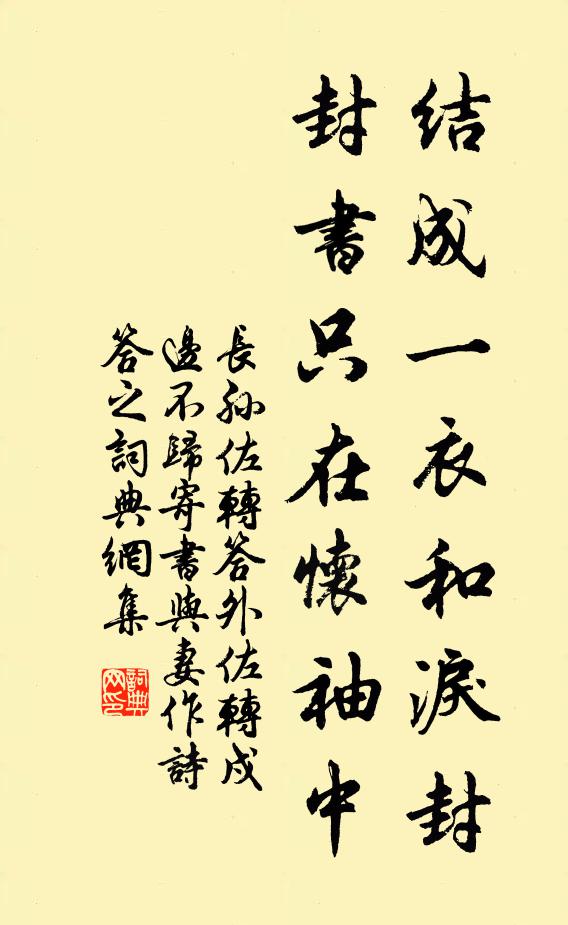 结成一衣和淚封
封書只在懷袖中
長孙佐轉答外佐轉戍
邊不歸寄書與妻作詩
答之詞典網集
詞典
网印